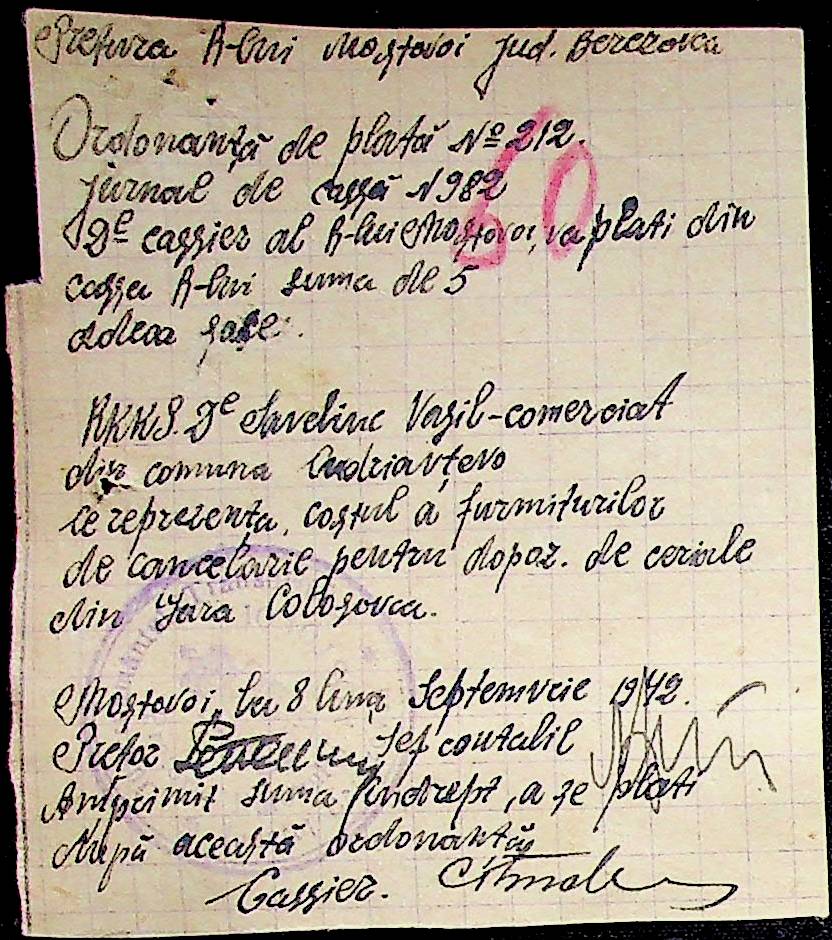 Pretura R-lui Mostovoi jud. Berezovca
Ordonanță de plată № 212.
jurnal de cassă N 982
60
De cassier al R-lui Mostovoi, va plati din
cassa R-lui suma de 5
adeca șase.
RKKS. De Saveliuc Vasil-comerciat
din comuna Cudriavțevo
ce reprezenta, costul a furmiturilor
de cancelarie pentru depoz. de ceriale
din Gara Colosovca.
Mostovoi, la 8 luna Septemvrie 1942.
Pretor Șef contabil
Amprimit suma indrept, a se plati
după această ordonantă
Cassier.